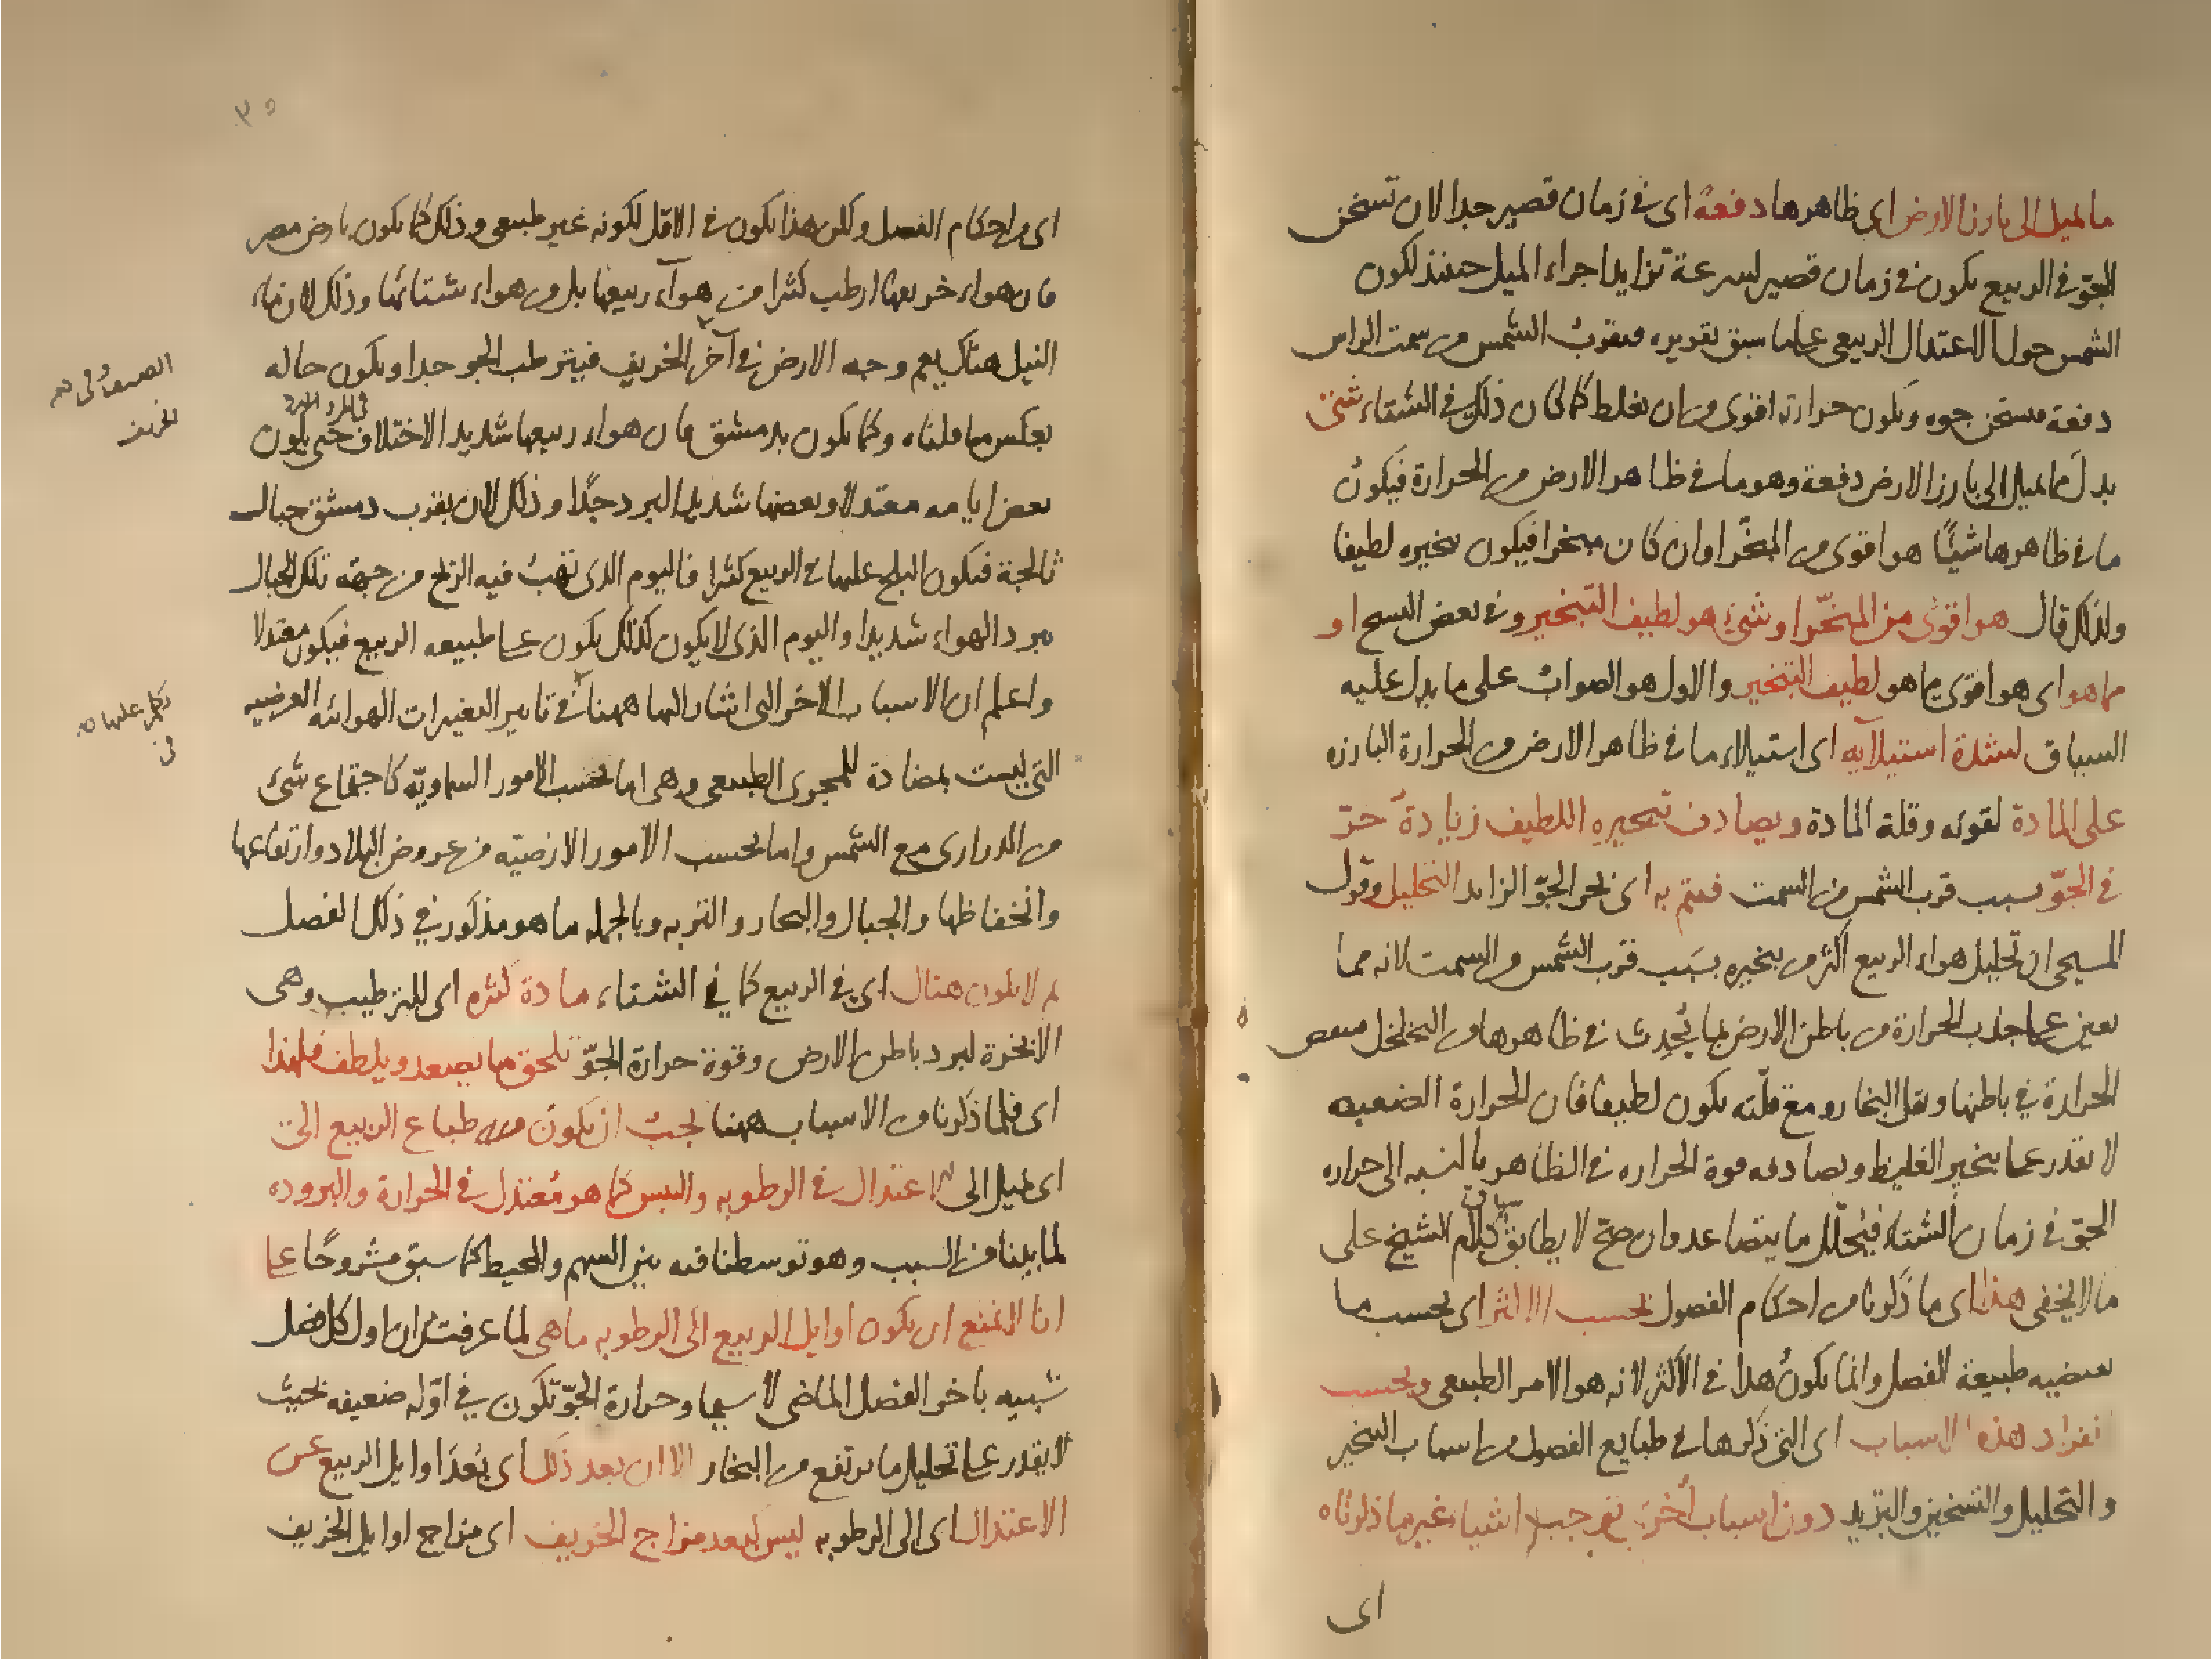 ما يميل الى بارز الارض اى ظاهرها دفعة اى فى زمان قصير جدا لان تسخن
الجو فى الربيع يكون فى زمان قصير لسرعة تزايد اجزاء الميل حينئذ لكون
الشمس حول الاعتدال الربيعى على ما سبق تقريره فيقرب الشمس من سمت الراس
دفعة فيسخن جوه ويكون حرارته اقوى من ان يغلظ كما كان ذلك فى الشتاء شئ
بدل ما يميل الى بارز الارض دفعة وهو ما فى ظاهر الارض من الحرارة فيكون
ما فى ظاهرها شيئا هو اقوى من المبخر او ان كان مبخرا فيكون تبخيره لطيفا
ولذلك قال هو اقوى من المبخر او شئ هو لطيف التبخير وفى بعض النسخ او
مما هو اى هو اقوى مما هو لطيف التبخير والاول هو الصواب على ما يدل عليه
السياق لشدة استيلائه اى استيلاء ما فى ظاهر الارض من الحرارة البارزه
على المادة لقوته وقلة المادة ويصادف تبخيره اللطيف زيادة حر
فى الجو بسبب قرب الشمس من السمت فيتم به اى بحر الجو الزايد التحليل وقول
المسيحى ان تحليل هواء الربيع اكثر من تبخيره بسبب قرب الشمس من السمت لانه مما
يعين على جذب الحرارة من باطن الارض لما يحدث فى ظاهرها من التخلخل فينقص
الحرارة فى باطنها ويقل البخار ومع قلته يكون لطيفا فان الحرارة الضعيفه
لا يقدر على تبخير الغليظ ويصادفه قوة الحراره فى الظاهر بالنسبه الى حراره
الجو فى زمان الشتاء فيحلل ما يتصاعد وان صح لا يطابق سياق كلام الشيخ على
ما لا يخفى هذا اى ما ذكرنا من احكام الفصول بحسب الاكثر اى بحسب ما
يقتضيه طبيعة الفصل وانما يكون هذا فى الاكثر لانه هو الامر الطبيعى وبحسب
انفراد هذه الاسباب اى التى ذكرها فى طبايع الفصول من اسباب التبخير
والتحليل والتسخين والتبريد دون اسباب اخرى توجب اشياء غير ما ذكرناه
اى
٣٥
اى من احكام الفصل ولكن هذا يكون فى الاقل لكونه غير طبيعى وذلك كما يكون بارض مصر
فان هواء خريفها ارطب كثيرا من هواء ربيعها بل من هواء شتائها وذلك لان ماء
النيل هناك يعم وجه الارض فى آخر الخريف فيترطب الجو جدا ويكون حاله
بعكس ما قلناه وكما يكون بدمشق فان هواء ربيعها شديد الاختلاف فى الحر والبرد حتى يكون
بعض ايامه معتدلا وبعضها شديد البرد جدا وذلك لان بقرب دمشق جبال
ثالجة فيكون الثلج عليها فى الربيع كثيرا فاليوم الذى تهب فيه الريح من جهة تلك الجبال
يبرد الهواء شديدا واليوم الذى لا يكون كذلك يكون على طبيعه الربيع فيكون معتدلا
واعلم ان الاسباب الاخر التى اشار اليها ههنا فى تاثير التغيرات الهوائيه العرضيه
التى ليست بمضادة للمجرى الطبيعى وهى اما بحسب الامور السماوية كاجتماع شئ
من الدرارى مع الشمس واما بحسب الامور الارضيه من عروض البلاد وارتفاعها
وانخفاظها والجبال والبحار والتربه وبالجمله ما هو مذكور فى ذلك الفصل
ثم لا يكون هناك اى فى الربيع كما فى الشتاء مادة كثيره اى للترطيب وهى
الابخرة لبرد باطن الارض وقوة حرارة الجو تلحق ما يصعد ويلطف فلهذا
اى فلما ذكرنا من الاسباب ههنا يجب ان يكون من طباع الربيع الى
اى يميل الى الاعتدال فى الرطوبه واليبس كما هو معتدل فى الحرارة والبروده
لما بينا من السبب وهو توسطنا فيه بين السهم والمحيط كما سبق مشروحا على
انا لا نمنع ان يكون اوايل الربيع الى الرطوبه ما هى لما عرفت ان اول كل فصل
شبيه باخر الفصل الماضى لا سيما وحرارة الجو تكون فى اوله ضعيفه بحيث
لا يقدر على تحليل ما يرتفع من البخار الا ان بعد ذلك اى بعد اوايل الربيع عن
الاعتدال اى الى الرطوبه ليس كبعد مزاج الخريف اى مزاج اوايل الخريف